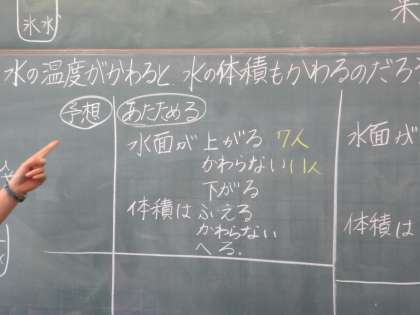 氷水
水の温度がかわると 水の体積もかわるのだろ
予想
あたためる
水面が 上がる 7人
かわらない 11人
下がる
体積は ふえる
かわらない
へる.
水面が
体積は